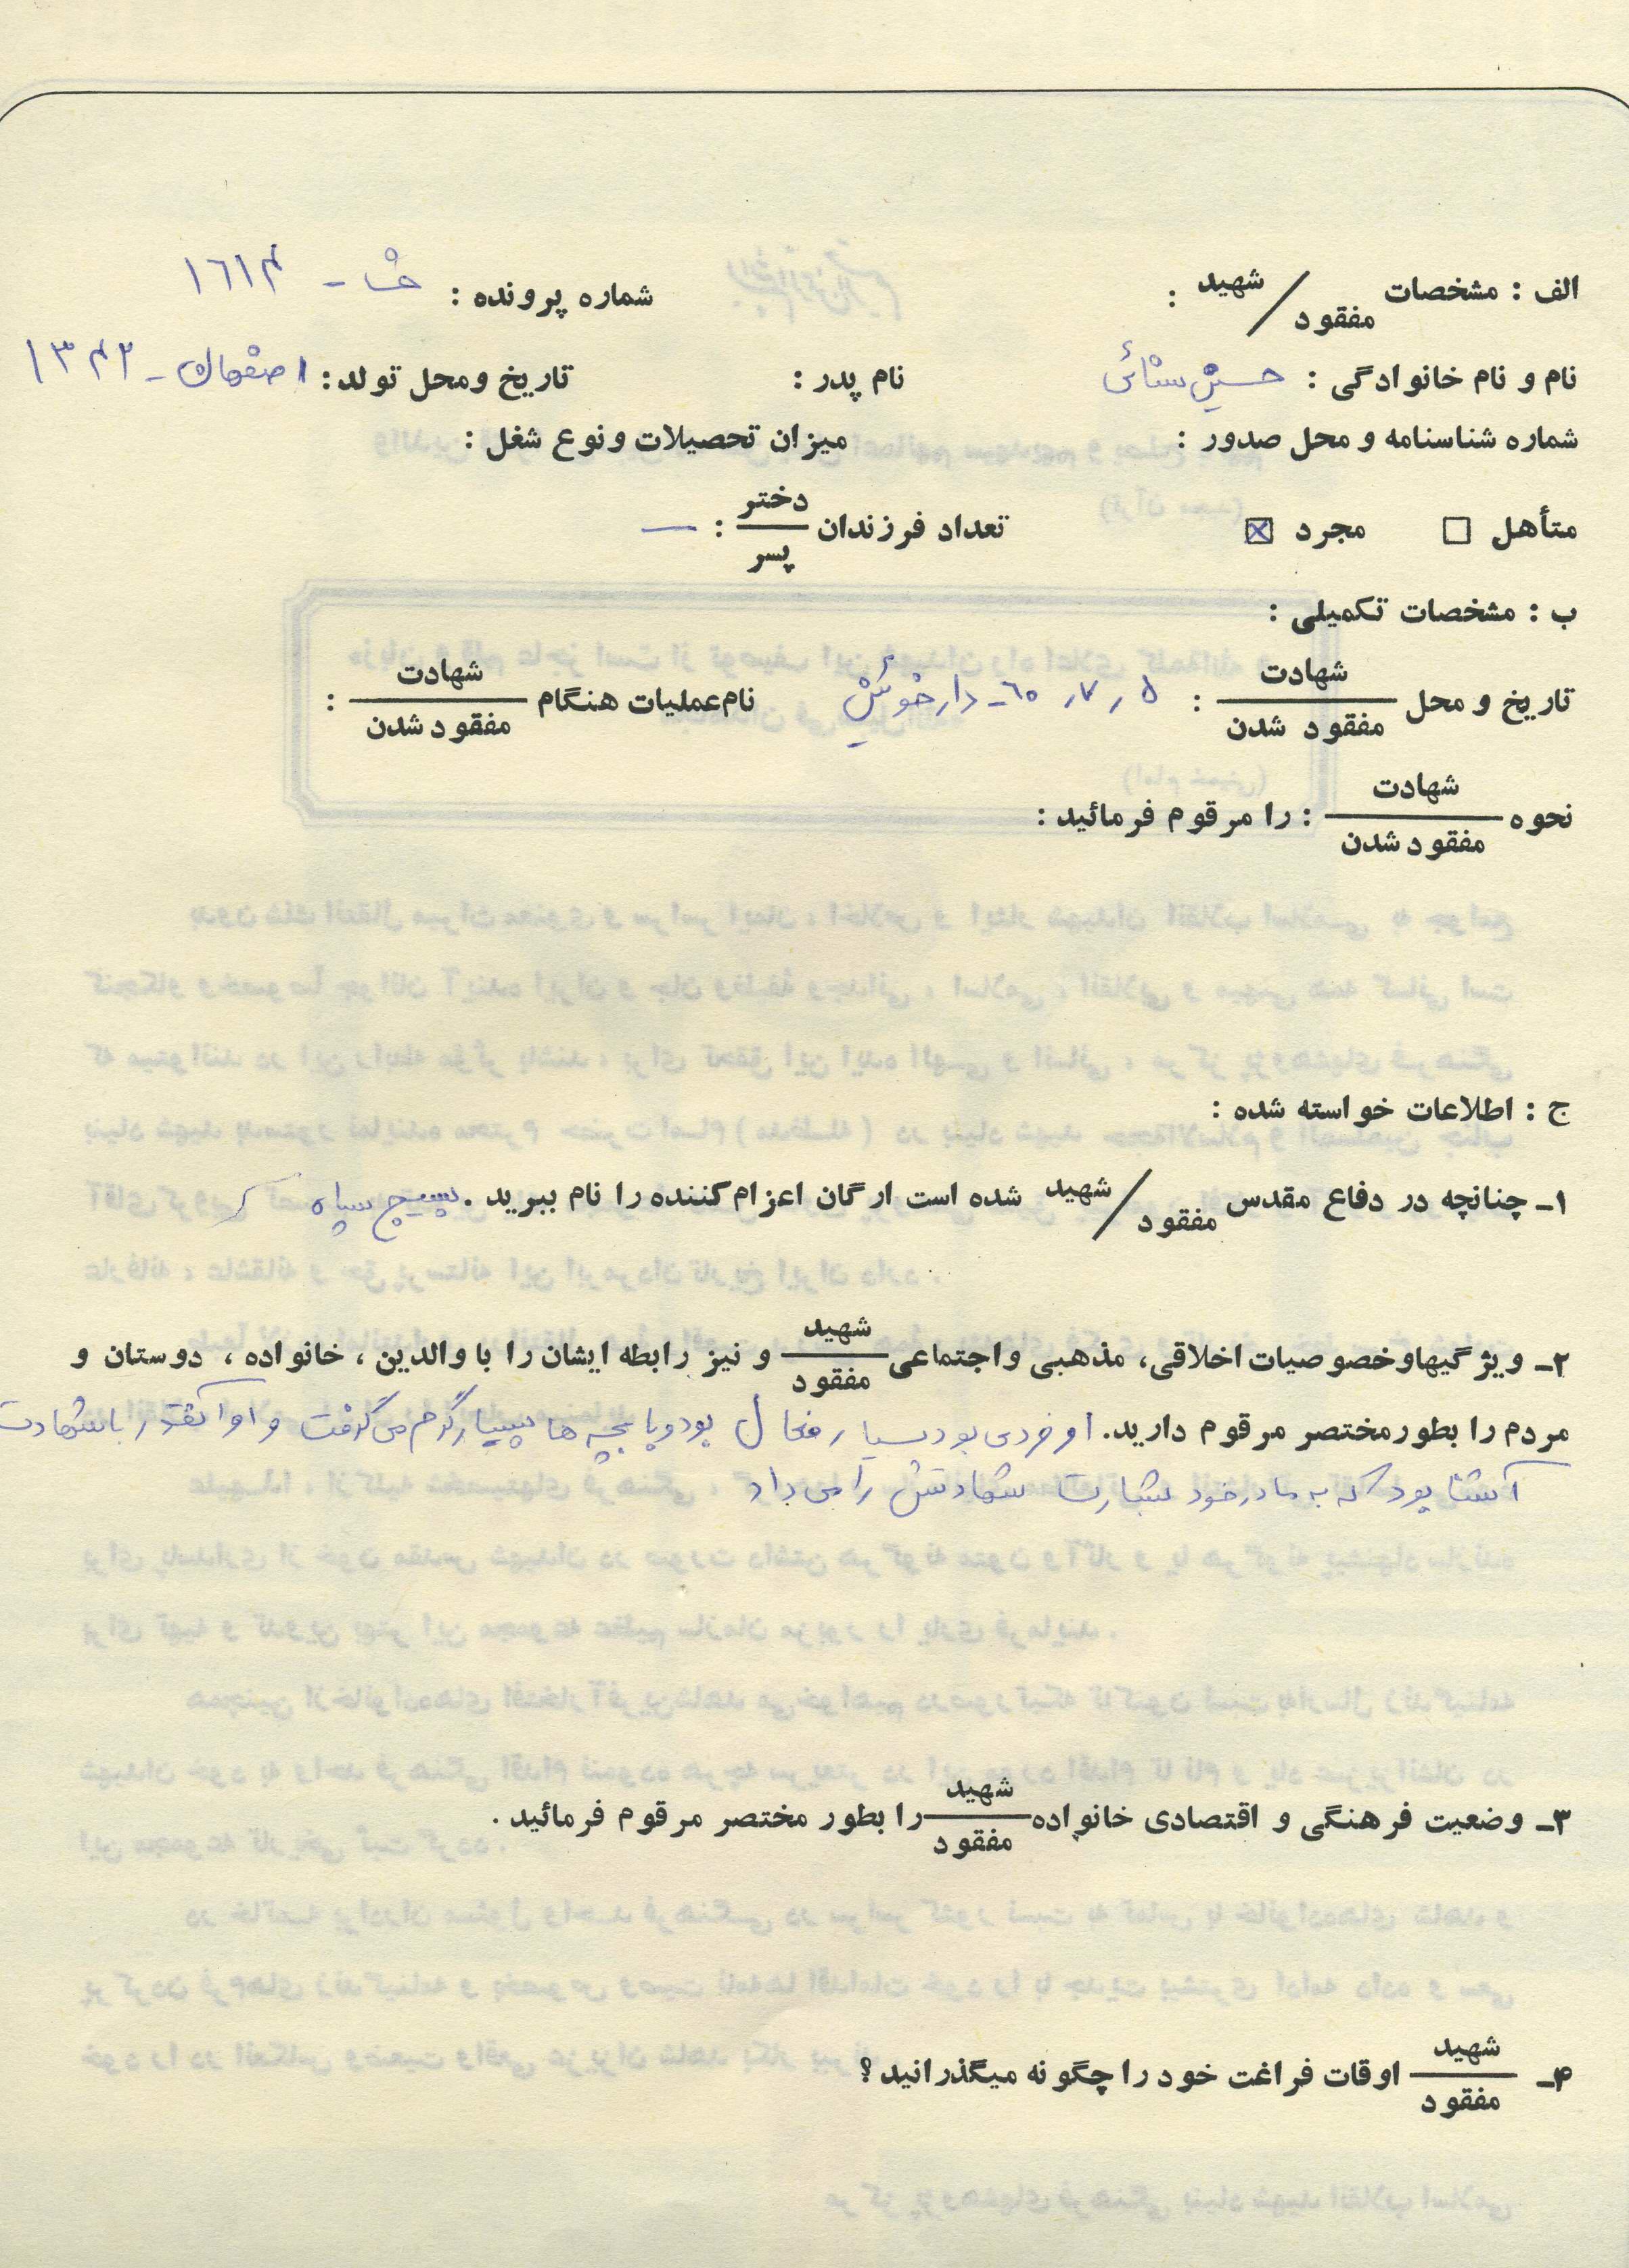 الف : مشخصات شهید / مفقود :
شماره پرونده : ۱٦۱۴
نام و نام خانوادگی : حسین ستائی
نام پدر :
تاریخ ومحل تولد : اصفهان - ۱۳۴۲
شماره شناسنامه و محل صدور :
میزان تحصیلات ونوع شغل :
متأهل ☐ مجرد ☒
تعداد فرزندان دختر / پسر : —
ب : مشخصات تکمیلی :
تاریخ و محل شهادت / مفقود شدن : ۵ ر ۷ ر ٦۰ - دارخوئین
نام عملیات هنگام شهادت / مفقود شدن :
نحوه شهادت / مفقود شدن : را مرقوم فرمائید :
ج : اطلاعات خواسته شده :
۱ـ چنانچه در دفاع مقدس شهید / مفقود شده است ارگان اعزام کننده را نام ببرید . بسیج سپاه
۲ـ ویژگیهاوخصوصیات اخلاقی، مذهبی واجتماعی شهید / مفقود و نیز رابطه ایشان را با والدین ، خانواده ، دوستان و
مردم را بطورمختصر مرقوم دارید. او فردی بود بسیار فعال بود و با بچه ها بسیار گرم می گرفت و او آنقدر با شهادت
آشنا بود که به مادر خود بشارت شهادتش را می داد
۳ـ وضعیت فرهنگی و اقتصادی خانواده شهید / مفقود را بطور مختصر مرقوم فرمائید .
۴ـ شهید / مفقود اوقات فراغت خود را چگونه میگذرانید ؟